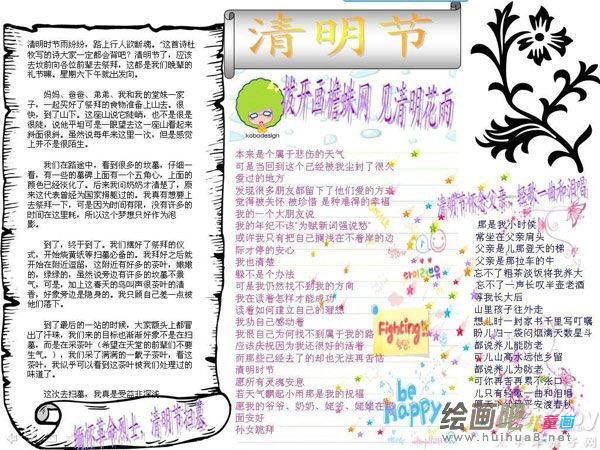 清明节
清明时节雨纷纷，路上行人欲断魂。"这首诗杜
牧写的诗大家一定都会背吧？清明节了，应该
去坟前向各位前辈去祭拜，这都是我们晚辈的
礼节嘛。星期六下午就出发向。
妈妈、爸爸、弟弟、我和我的堂妹一家
子，一起买好了祭拜的食物准备上山去。很
快，到了山下。这座山说它陡峭，也不是很是
很陡，说他平坦可是一眼望去这一座山看起来
斜面很斜。虽然说每年来这里一次，但是感觉
上并不是很陌生。
我们在路途中，看到很多的坟墓。仔细一
看，有一些的墓碑上面有一个五角心，上面的
颜色已经淡化了。后来我问奶奶才清楚了，原
来这代表曾经为国家捐躯过的。我真有想要上
去祭拜一下，可是因为时间有限，没有许多的
时间在这里耗，所以这个梦想只好作为泡
影。
到了，终于到了。我们摆好了祭拜的仪
式，开始烧黄纸等扫墓必备的。我拜好之后就
开始在附近逗留，这附近有好多的茶叶，嫩嫩
的，绿绿的。虽然说旁边有许多的坟墓不景
气，可是，加上这春天的鸟叫声很茶叶的清
香，好象旁边是隐身的。我只顾自己差一点被
他们落下。
到了最后的一站的时候，大家额头上都冒
出了汗珠，我们来的目标也渐渐好象不是在扫
墓，而是在采茶叶（希望在天堂的前辈们不要
生气。），我们采了满满的一麒子茶叶，看这
茶叶，我似乎可以看到这茶叶被我们处理过的
味道了。
这次去扫墓，我真是受益非浅诶
缅怀革命烈士，清明节扫墓
kabadesign
拨开画檐蛛网 见清明花雨
本来是个属于悲伤的天气
可是当回到这个已经被我尘封了很久
爱过的地方
发现很多朋友都留下了他们爱的方式
觉得被关怀 被珍惜 是种难得的幸福
我的一个大朋友说
我的年纪不该"为赋新词强说愁"
或许我只有把自己搁浅在不着岸的边
际才停的安心
我也清楚
躲不是个办法
可是我仍然找不到我的方向
我在读着怎样才能成功
读着如何建立自己的理想
我劝自己感动着
我恨自己为何找不到属于我的路
但该庆抚因为我还很好的活着
而那些已经去了的却也无法再苦恼
清明时节
愿所有灵魂安息
若天气飘起小雨那是我的祝福
愿我的爷爷、奶奶、姥爷、姥姥在那
面安好
孙女跪拜
Fighting!
be
HAPPY
清明节怀念父亲，轻歌一曲和泪唱
那是我小时候
常坐在父亲肩头
父亲是儿那登天的梯
父亲是那拉车的牛
忘不了粗茶淡饭将我养大
忘不了一声长叹半壶老酒
等我长大后
山里孩子往外走
想儿时一封家书千里写叮嘱
盼儿归一袋闷烟满天数星斗
都说养儿能防老
可儿山高水远他乡留
都说养儿为防老
可你再苦再累不张口
儿只有轻歌一曲和泪唱
愿天下父母平安渡春秋
绘画吧儿童画
www.huihua8.net